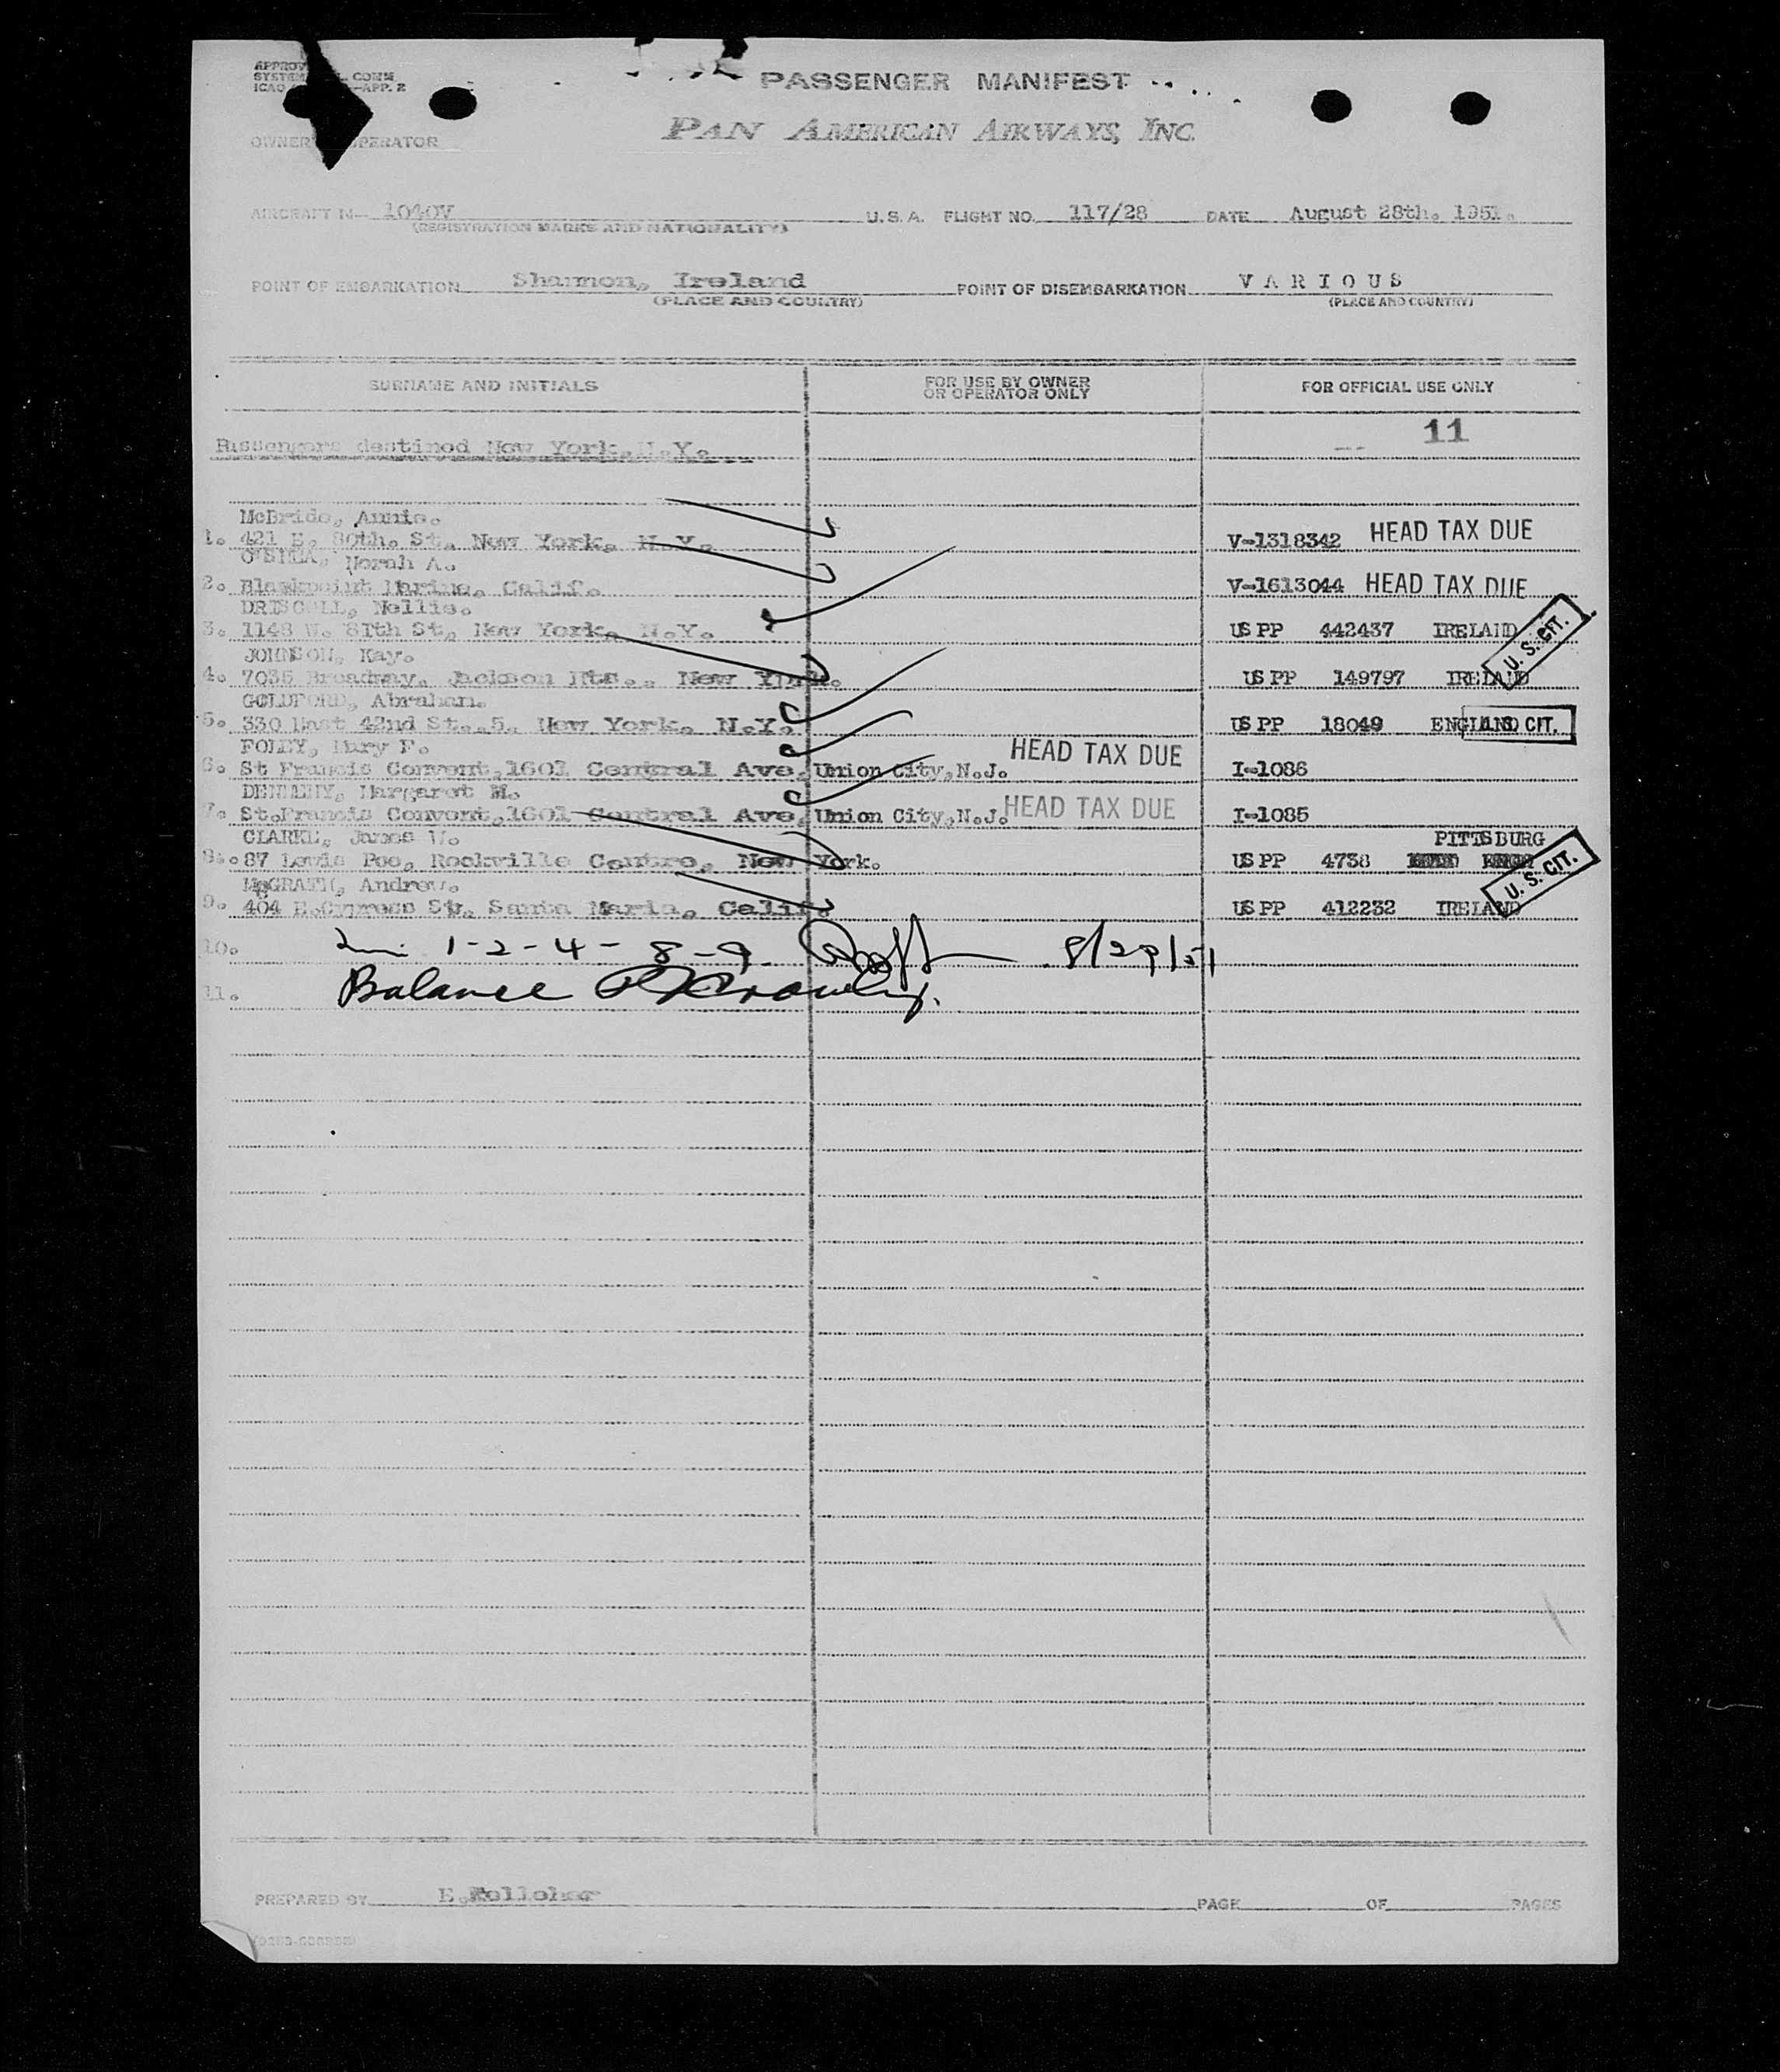 PASSENGER MANIFEST
PAN AMERICAN AIRWAYS, INC.
OWNER OPERATOR
AIRCRAFT N- 1040V U.S.A. FLIGHT NO. 117/28 DATE August 28th. 1951.
(REGISTRATION MARKS AND NATIONALITY)
POINT OF EMBARKATION Shannon, Ireland POINT OF DISEMBARKATION VARIOUS
(PLACE AND COUNTRY) (PLACE AND COUNTRY)
SURNAME AND INITIALS FOR USE BY OWNER OR OPERATOR ONLY FOR OFFICIAL USE ONLY
11
Passengers destined New York, N.Y.
McBride, Annie.
1. 421 E. 80th. St., New York, N.Y. V-1318342 HEAD TAX DUE
O'SHEA, Norah A.
2. Blackpoint Marine, Calif. V-1613044 HEAD TAX DUE
DRISCOLL, Nellie.
3. 1148 W. St., New York, N.Y. US PP 442437 IRELAND U. S. CIT.
JOHNSON, Kay.
4. 7035 Broadway, Jackson Hts., New York. US PP 149797 IRELAND
GOLDFORD, Abraham.
5. 330 East 42nd St., 5, New York, N.Y. US PP 18049 ENGLAND U. S. CIT.
FOLEY, Mary F. HEAD TAX DUE
6. St Francis Convent, 1601 Central Ave, Union City, N.J. I-1086
Margaret M.
7. St. Francis Convent, 1601 Central Ave, Union City, N.J. HEAD TAX DUE I-1085
CLARKE, James W. PITTSBURG
8. 87 Lewis Pee, Rockville Centre, New York. US PP 4738 U. S. CIT.
McGRATH, Andrew.
9. 404 E. Cypress St, Santa Maria, Calif. US PP 412232 IRELAND
10. 1-2-4-8-9. 8/29/51
11. Balance
PREPARED BY E. Kelleher PAGE OF PAGES